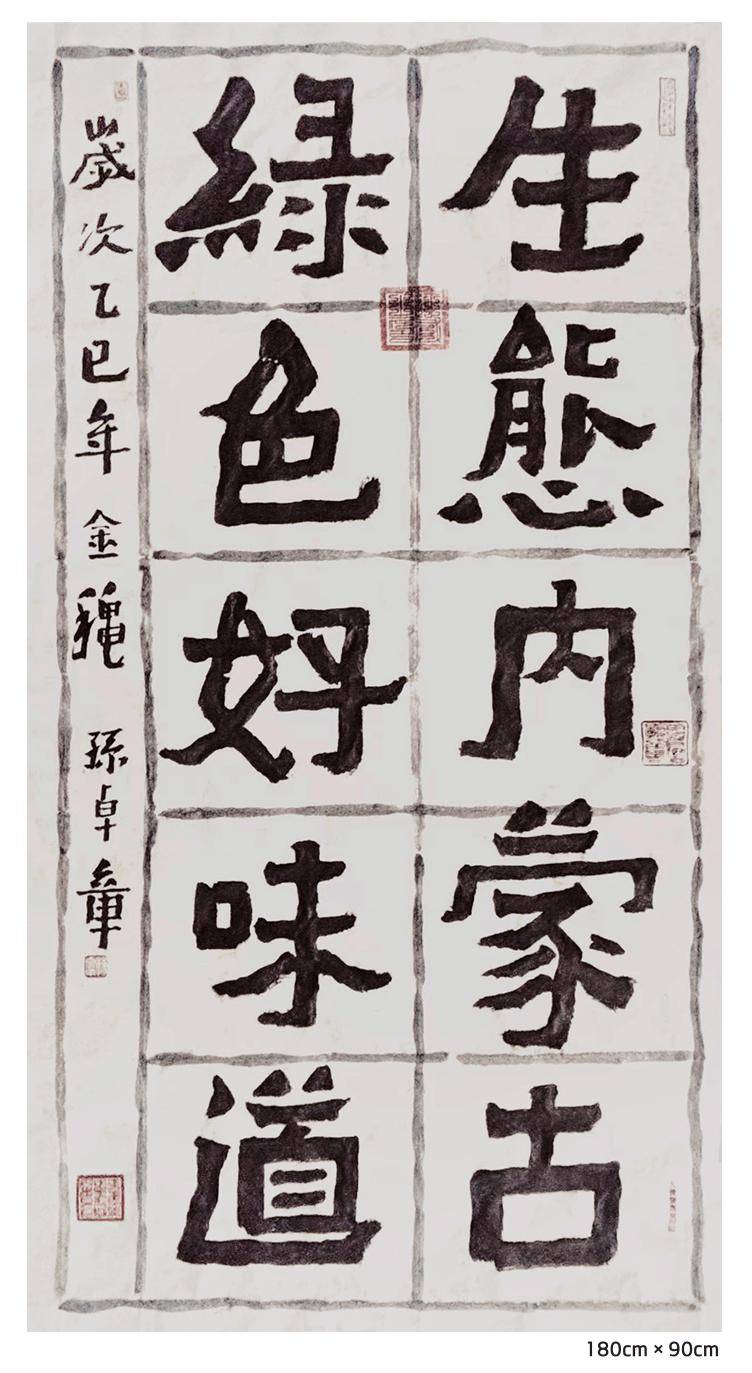 生態内蒙古
綠色好味道
歲次乙巳年金龝 孫卓章
180cm × 90cm